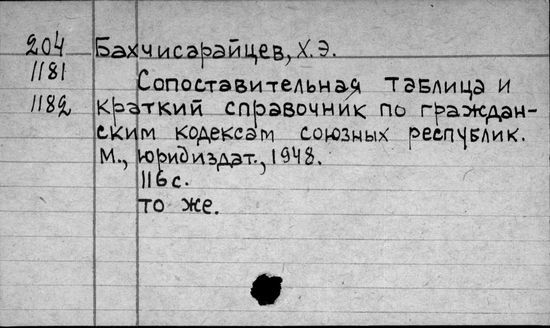 204 Бахчисарайцев, Х.Э.
1181 Сопоставительная таблица и
1182 краткий справочник по граждан-
ским кодексам союзных республик.
М., юридиздат., 1948.
116 с.
то же.